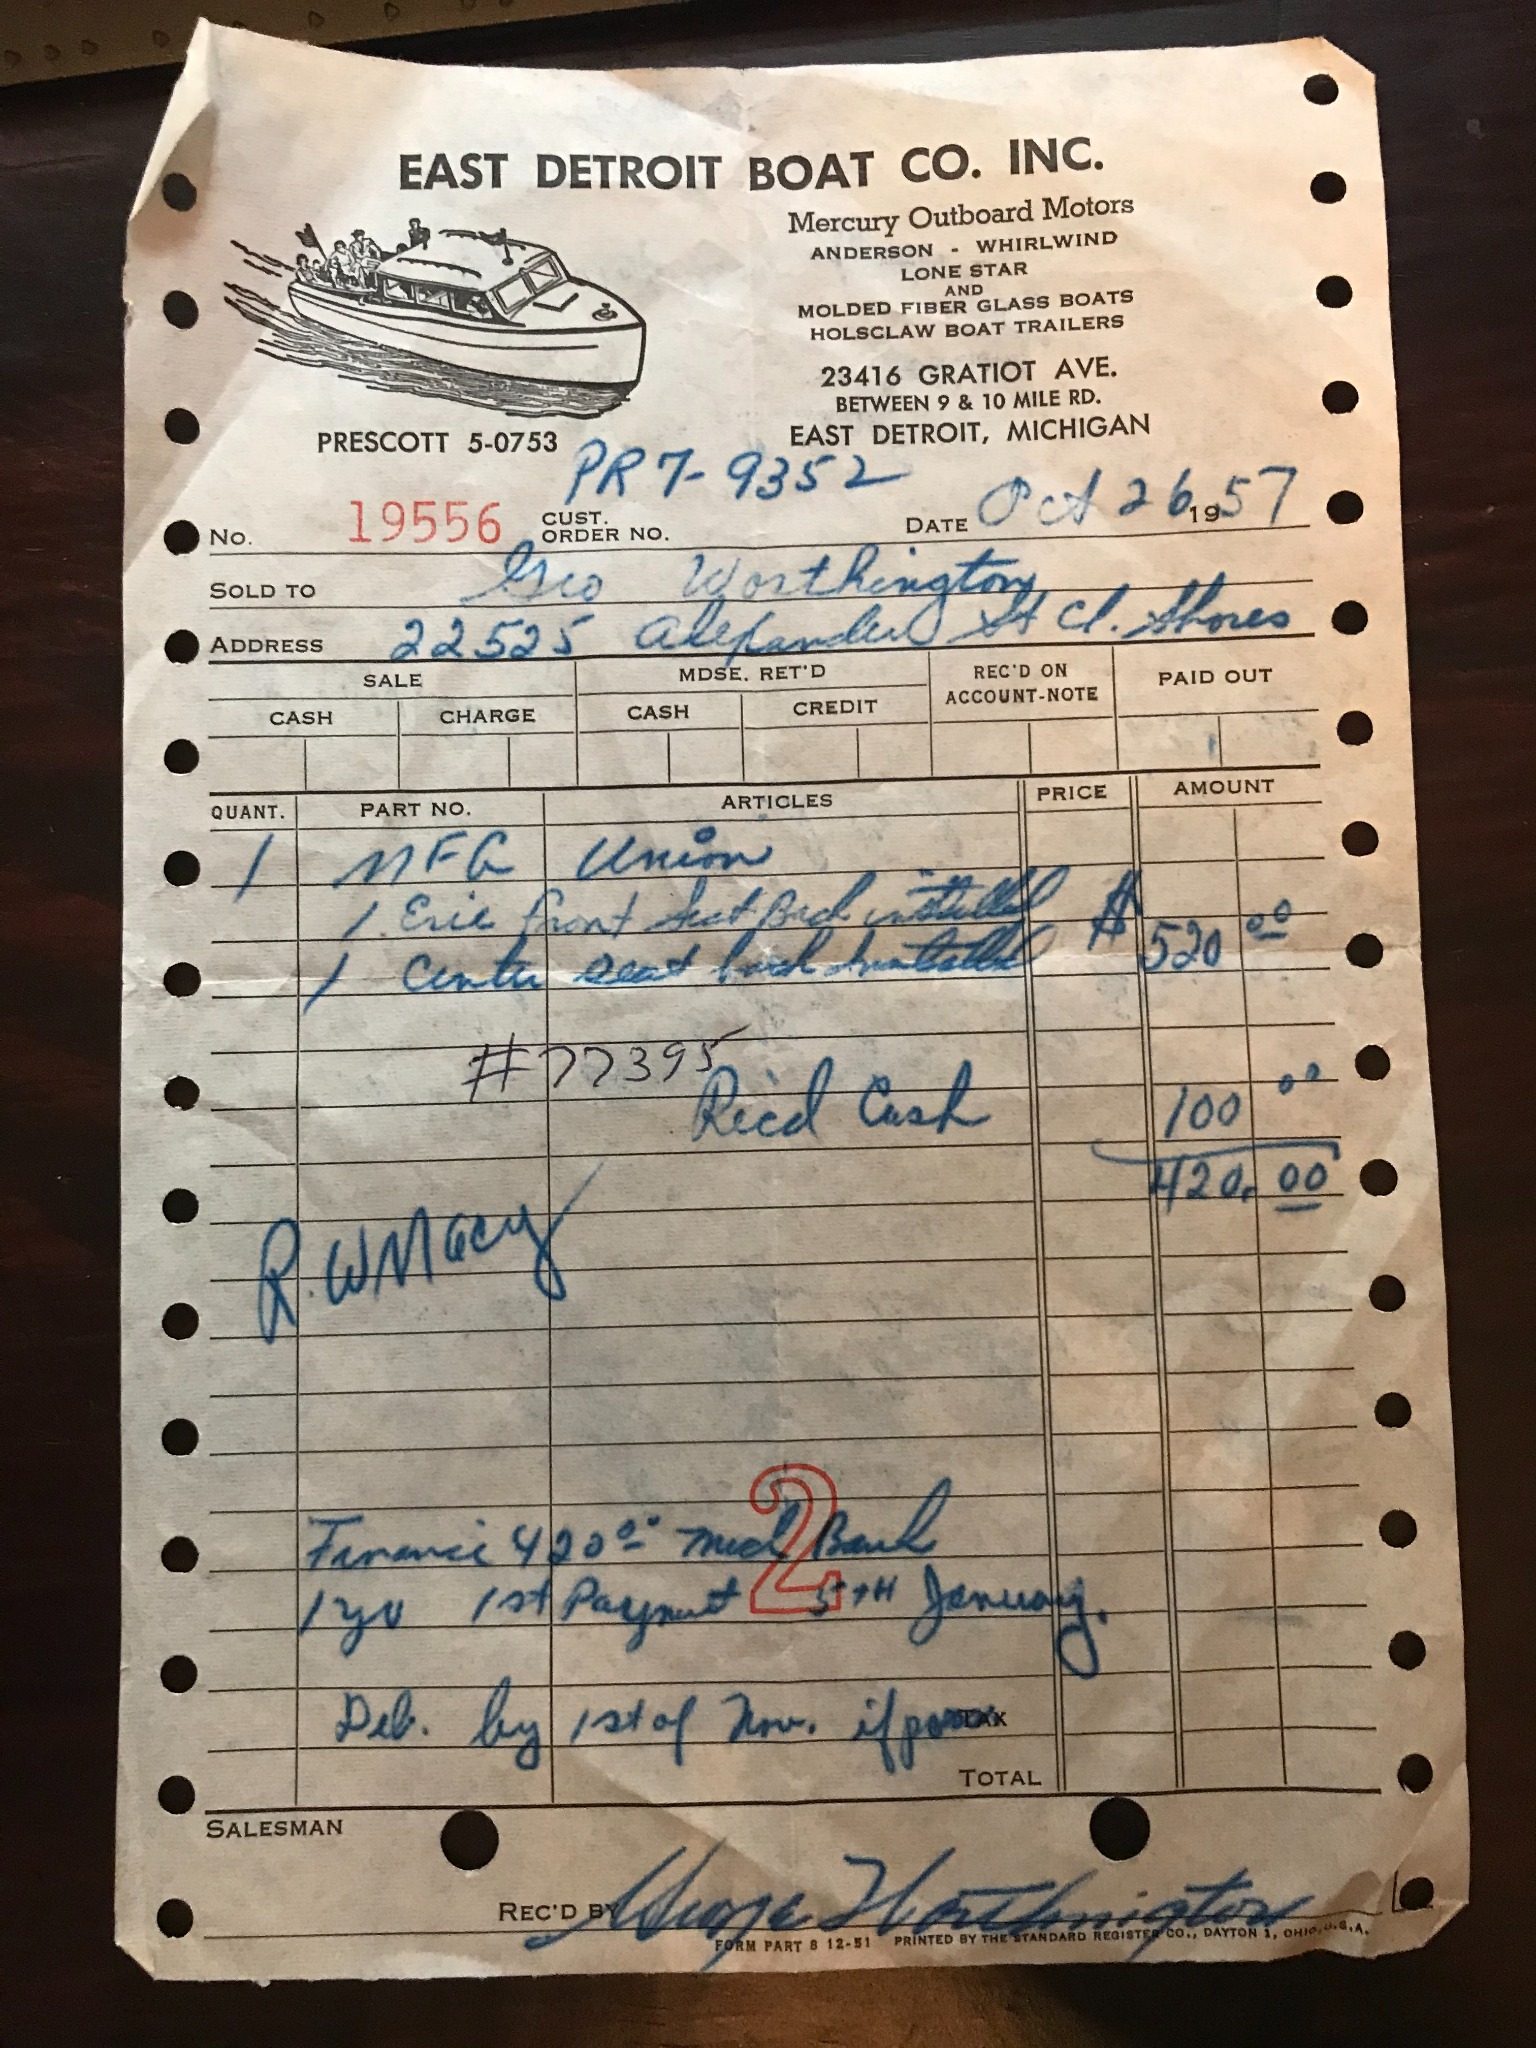 EAST DETROIT BOAT CO. INC.
Mercury Outboard Motors
ANDERSON - WHIRLWIND
LONE STAR
AND
MOLDED FIBER GLASS BOATS
HOLSCLAW BOAT TRAILERS
23416 GRATIOT AVE.
BETWEEN 9 & 10 MILE RD.
PRESCOTT 5-0753 EAST DETROIT, MICHIGAN
PR 7-9352
No. 19556 CUST. ORDER NO. DATE Oct 26 1957
SOLD TO Geo Worthington
ADDRESS 22525 Alexander St Cl. Shores
SALE MDSE. RET'D REC'D ON ACCOUNT-NOTE PAID OUT
CASH CHARGE CASH CREDIT
QUANT. PART NO. ARTICLES PRICE AMOUNT
1 MFG Union
1 Erie front Seat Back installed $ 520 00
1 Center seat back installed
#77395
Rec'd Cash 100 00
420. 00
R. W Macy
2
Finance 420 00 Mich Bank
1 yr 1st Payment 5TH January.
Del. by 1st of Nov. if poss.
TAX
TOTAL
SALESMAN
REC'D BY George Worthington
FORM PART 8 12-51 PRINTED BY THE STANDARD REGISTER CO., DAYTON 1, OHIO, U.S.A.